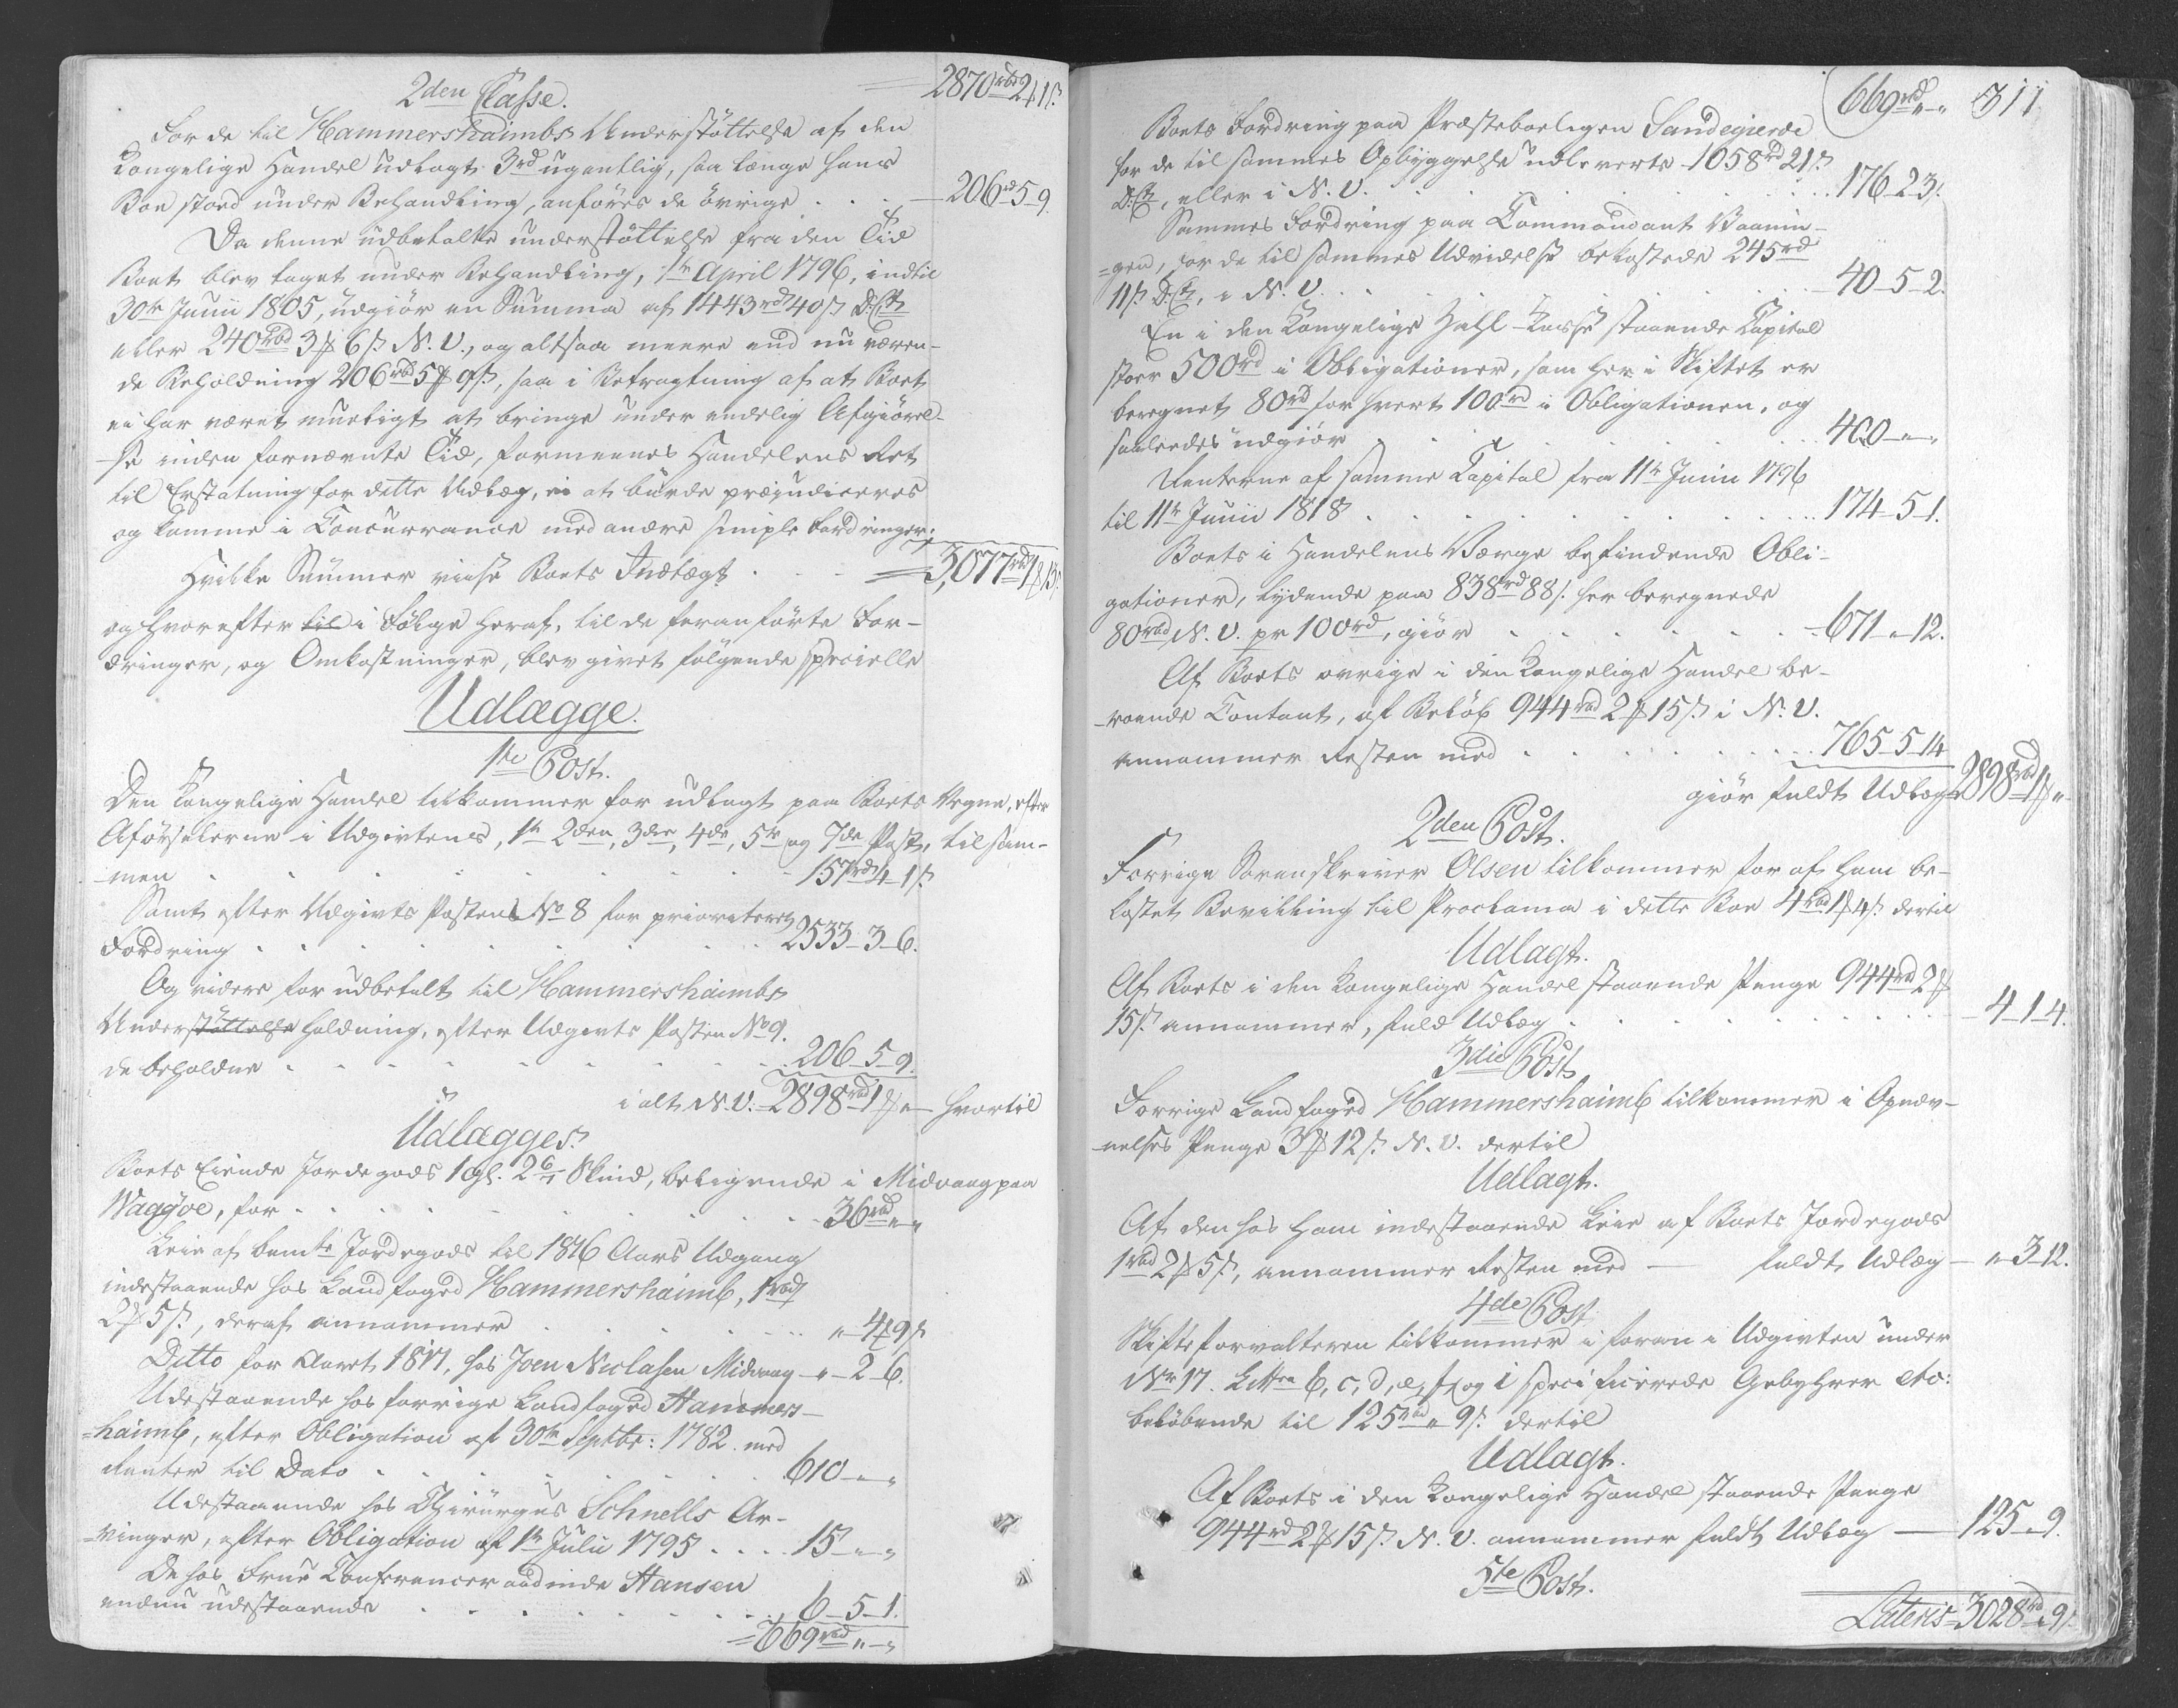 2den Classe. = 2870rbd 2 ₰ 1 s.
For de til Hammershaimbs Understøttelse af den
Kongelige Handel udlagte 3rd ugentlig, saa længe hans
Boe stoed under Behandling, anføres de øvrige . . . 206rd 5 9.
Da denne udbetalte understøttelse fra den Tid
Boet blev taget under Behandling, 1te April 1796, indtil
30te Junii 1805, udgiør en Summa af 1443rd 40 s. D. Ct.
eller 240rbd 3 ₰ 6 s. N. V., og altsaa meere end nu væren-
de Beholdning 206rbd 5 ₰ 9 s., saa i Betragtning af at Boet
ei har været mueligt at bringe under endelig Afgiørel-
se inden fornævnte Tid, formeenes Handelens Ret
til Erstatning for dette Udlæg, ei at burde præjudiceres
og komme i Concurrance med andre simple Fordringer;
Hvilke Summer viise Boets Indtægt . . = 3,077rd 1 ₰ 13 s.
og hvorefter til i Følge heraf, til de foranførte For-
dringer, og Omkostninger, blev givet følgende specielle
Udlægge.
1te Post.
Den Kongelige Handel tilkommer for udlagt paa Boets Vegne, efter
Anførselerne i Udgivtens, 1te 2den, 3die, 4de, 5te og 7de Post, tilsam-
men . . . 157rd 4 1 s.
Samt efter Udgivts Postens No 8 for prioriteret
Fordring . . . 2533 - 3 - 6.
Og videre for udbetalt til Hammershaimbs
Understøttelse holdning, efter Udgivts Posten No 9.
de beholdne . . . 206 - 5 - 9.
i alt N. V. 2898rbd 1 ₰ " hvortil
Udlægges.
Boets Eiende Jordegods 1 gl. 2 6/7 Skind, beligende i Midvaag paa
Waagøe, for . . . 36rbd " "
Leie af bemte Jordegods til 1816 Aars Udgang
indestaaende hos Landfoged Hammershaimb, 1rbd
2 ₰ 5 s., deraf annammer . . . " 4 ₰ 9 s.
Ditto for Aaret 1817. hos Joen Niclasen Midvaag - " - 2 - 6.
Udestaaende hos forrige Landfoged Hammers-
=haimb, efter Obligation af 30te Septbr: 1782. med
Renter til Dato . . . 610 - " - "
Udestaaende hos Chirurgus Schnells Ar-
-vinger, efter Obligation af 1te Julii 1795 . . . 15 - " - "
De hos Frue Conferenceraadinde Hansen
endnu udestaaende . . . 6 - 5 - 1.
= 669rbd " - "
669rd " - " 311
Boets Fordring paa Præsteboeligen Sandegierde
for de til sammes Opbyggelse udleverte 1058rd 21 s.
D. Ct., eller i N. V. . . . 176 - 2 - 3.
Sammes Fordring paa Commandant Vaanin-
=gen, for de til sammes Udvidelse bekostede 245rd
11 s. D. Ct., i N. V. . . . 40 - 5 - 2.
En i den Kongelige Zahl-Kasse staaende Capital
stoer 500rd i Obligationer, som her i Skiftet er
beregnet 80rd for hvert 100rd i Obligationen, og
saaledes udgiør . . . 400 - " - "
Renterne af samme Capital fra 11te Junii 1796
til 11te Junii 1818 . . . 174 - 5 - 1.
Boets i Handelens Værge befindende Obli-
gationer, lydende paa 838rd 88 s. her beregnede
80rbd N. V. pr 100rd, giør . . . 671 - " - 12.
Af Boets øvrige i den Kongelige Handel be-
roende Contant, af Beløb 944rbd 2 ₰ 15 s. i N. V.
annammer Resten med . . . 765 - 5 - 14
giør fuldt Udlæg = 2898rbd 1 ₰ "
2den Post.
Forrige Sorenskriver Olsen tilkommer for af ham be-
kostet Bevilling til Proclama i dette Boe 4rbd 1 ₰ 4 s. dertil
Udlagt.
Af Boets i den Kongelige Handel staaende Penge 944rd 2 ₰
15 s. annammer, fuld Udlæg . . . 4 - 1 - 4.
3die Post
Forrige Landfoged Hammershaimb tilkommer i Opnæv-
-nelses Penge 3 ₰ 12 s. N. V. dertil
Udlagt.
Af den hos ham indestaaende Leie af Boets Jordegods
1rbd 2 ₰ 5 s., annammer Resten med — fuldt Udlæg - " 3 - 12.
4de Post
Skifteforvalteren tilkommer i foran i Udgivten under
No 17. Littra b, c, d, e, f, og i specificerede Gebyhrer etc:
beløbende til 125rbd " 9 s. dertil
Udlagt.
Af Boets i den Kongelige Handel staaende Penge
944rd 2 ₰ 15 s. N. V. annammer fuldt Udlæg — 125 " 9.
5te Post.
Lateris 3028rd " 9 s.